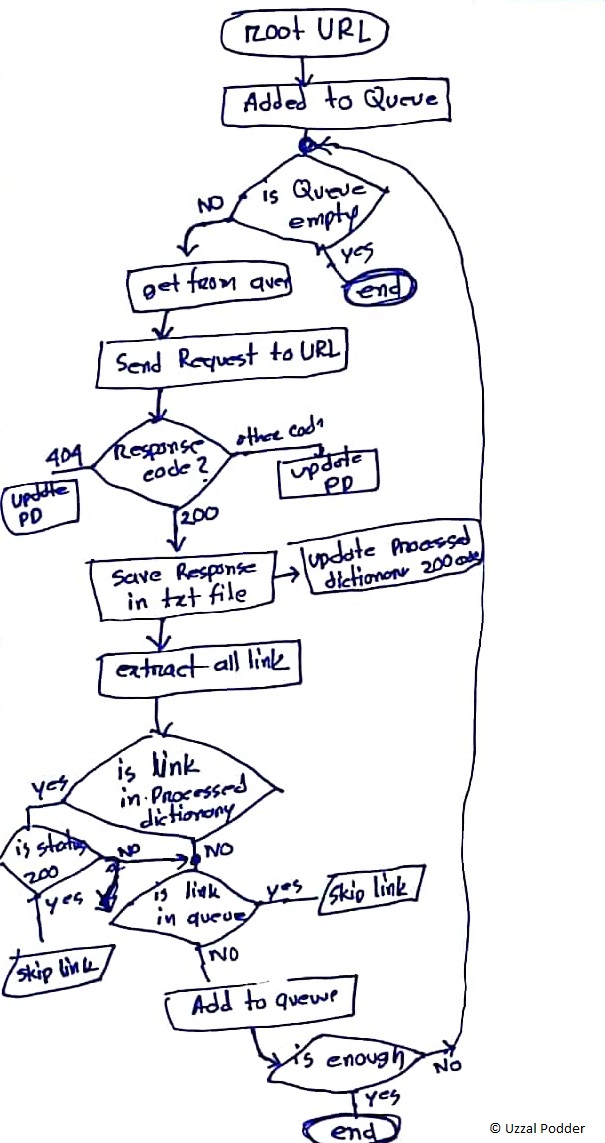 root URL
Added to Queue
is Queue
empty
NO
yes
end
get from
Send Request to URL
Response
code?
404
other
update
PD
update
PD
200
Save Response
in txt file
update Processed
dictionary 200 code
extract all link
is link
in Processed
dictionary
yes
NO
is status
200
NO
yes
skip link
is link
in queue
yes
skip link
NO
Add to queue
is enough
NO
yes
end
© Uzzal Podder